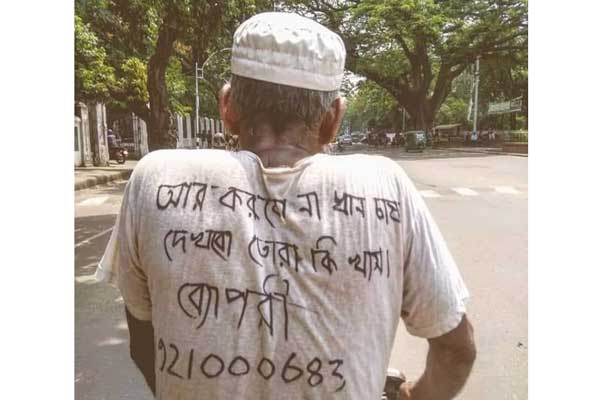 আর করমে না ধান চাষ
দেখবো তোরা কি খাস।
ব্যেপরী
921000683